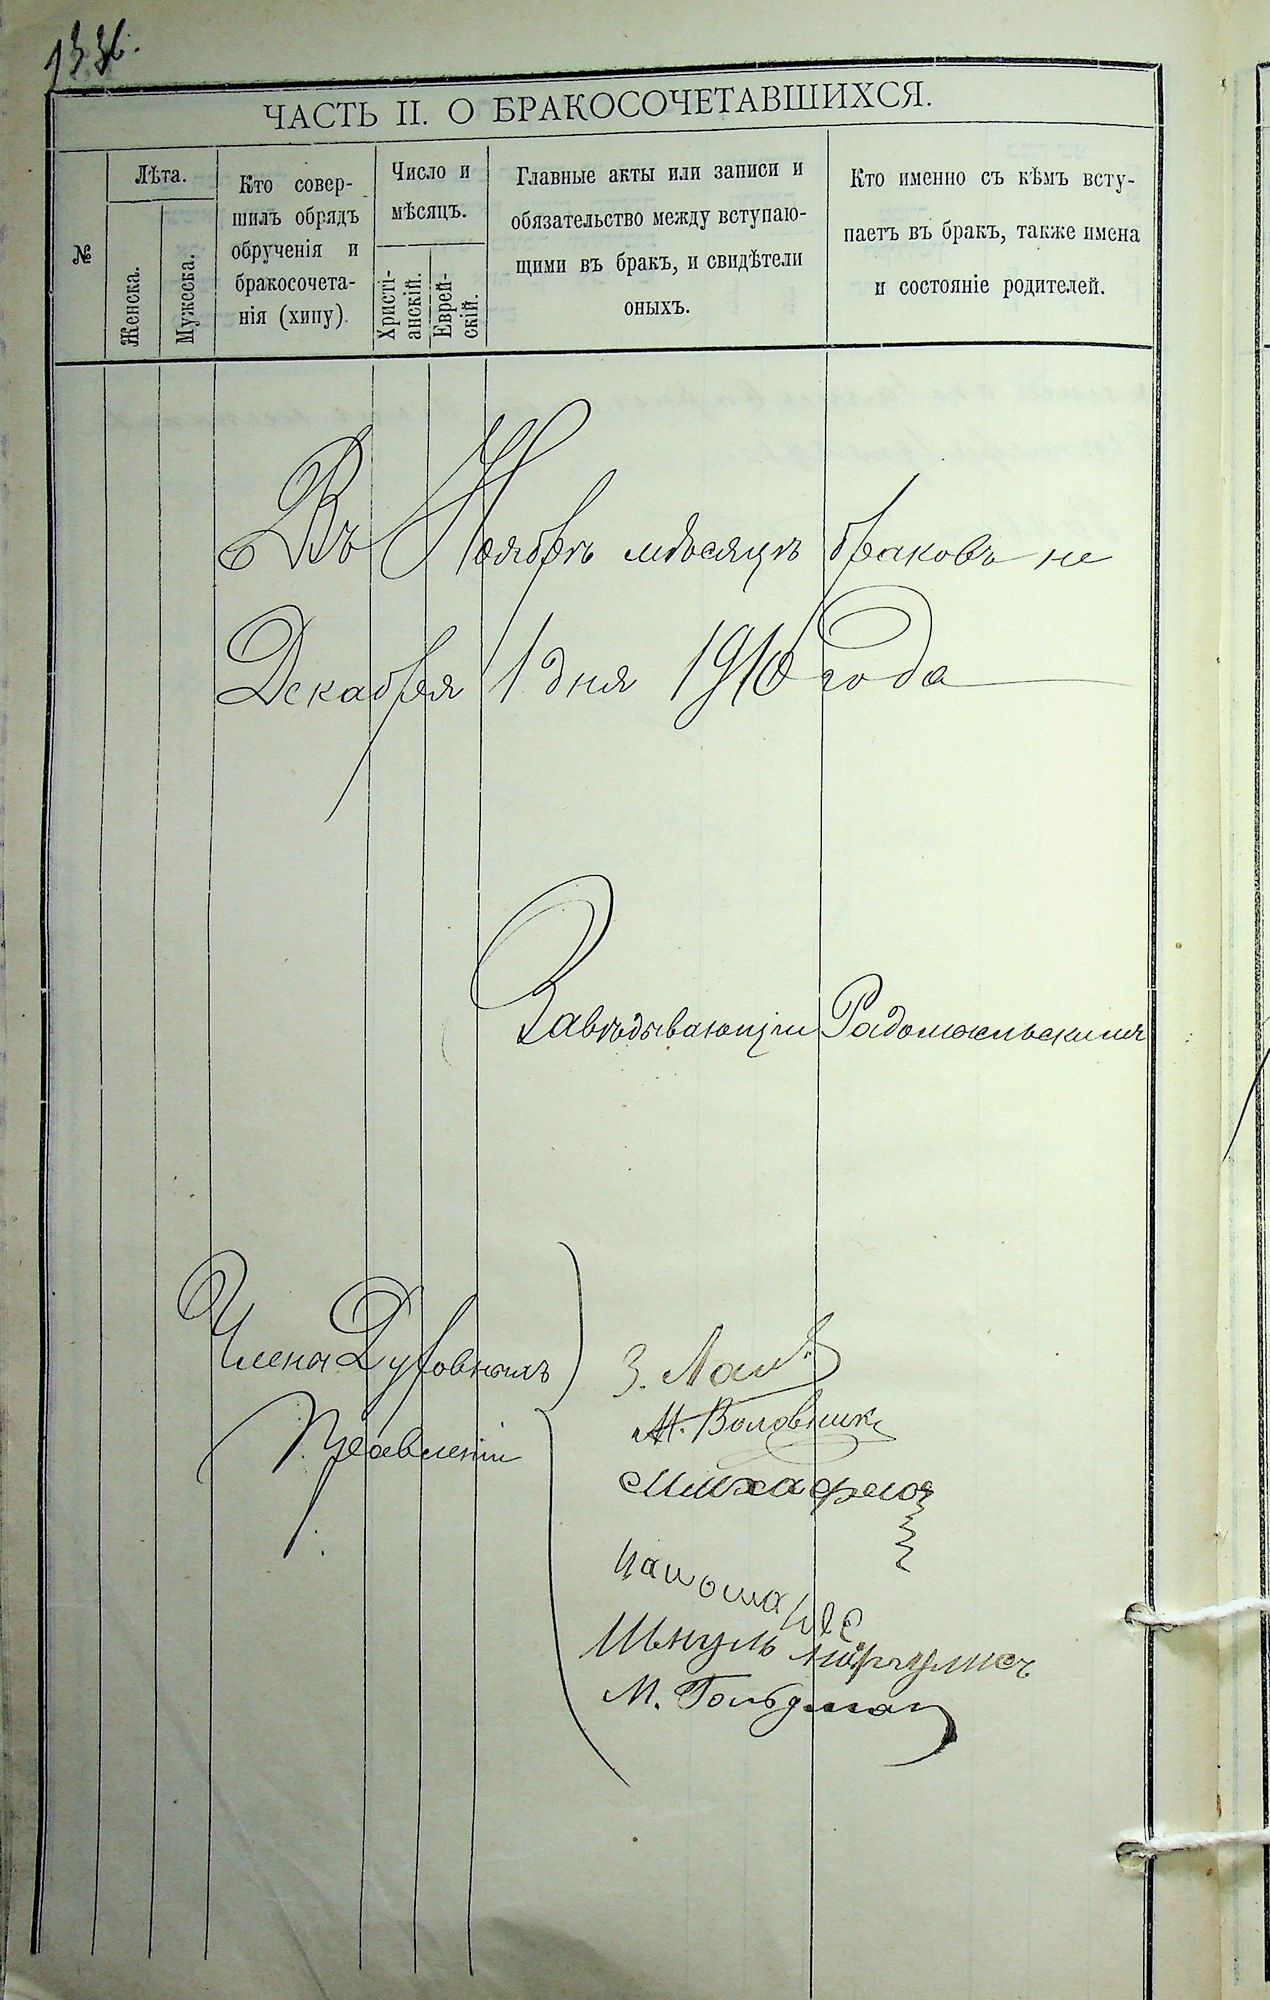 ЧАСТЬ II. О БРАКОСОЧЕТАВШИХСЯ.
№
Лѣта.
Женска.
Мужеска.
Кто совер-
шилъ обрядъ
обрученія и
бракосочета-
нія (хипу).
Число и
мѣсяцъ.
Христі-
анскій.
Еврей-
скій.
Главные акты или записи и
обязательство между вступаю-
щими въ бракъ, и свидѣтели
оныхъ.
Кто именно съ кѣмъ всту-
паетъ въ бракъ, также имена
и состояніе родителей.
Въ Ноябрѣ мѣсяцѣ браковъ не
Декабря 1 дня 1910 года
Завѣдывающій Радомысльскимъ
Члены Духовныхъ
Правленій
З.
М. Воловник
Шмуль Маргулисъ
М. Гольдман